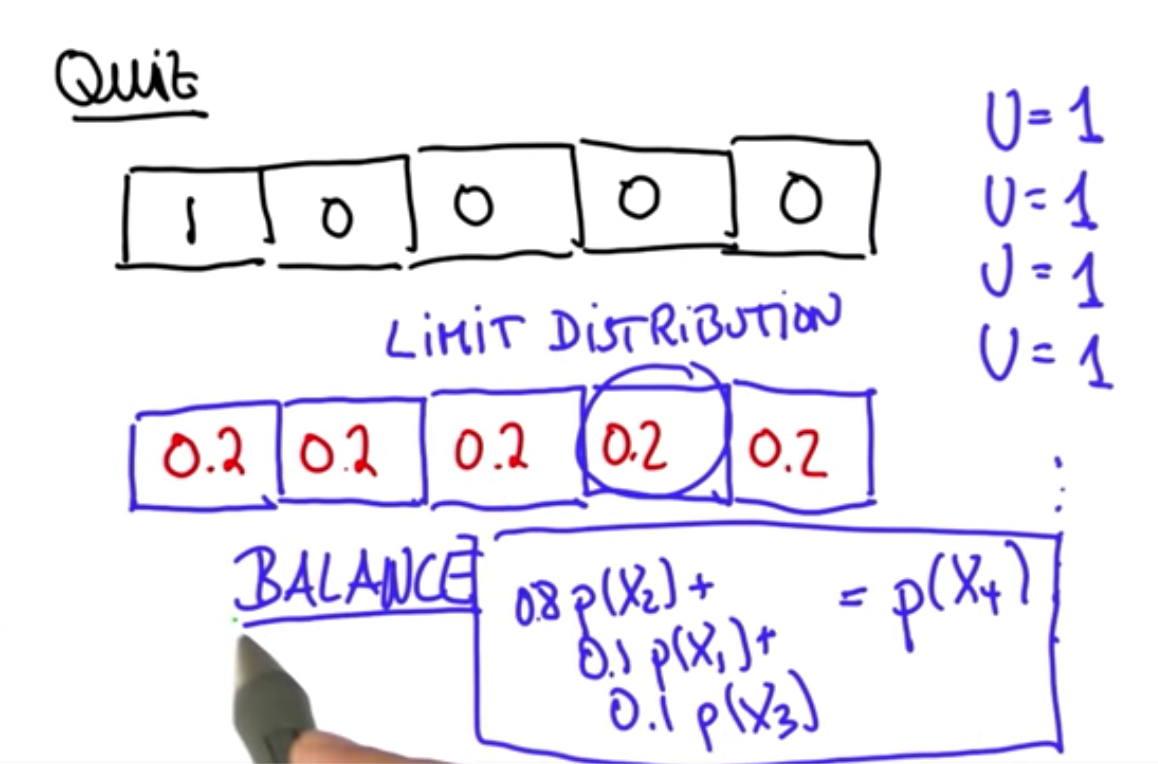 Quiz
1 0 0 0 0
U = 1
U = 1
U = 1
U = 1
⋮
LIMIT DISTRIBUTION
0.2 0.2 0.2 0.2 0.2
BALANCE
0.8 p(X₂) + = p(X₄)
0.1 p(X₁) +
0.1 p(X₃)